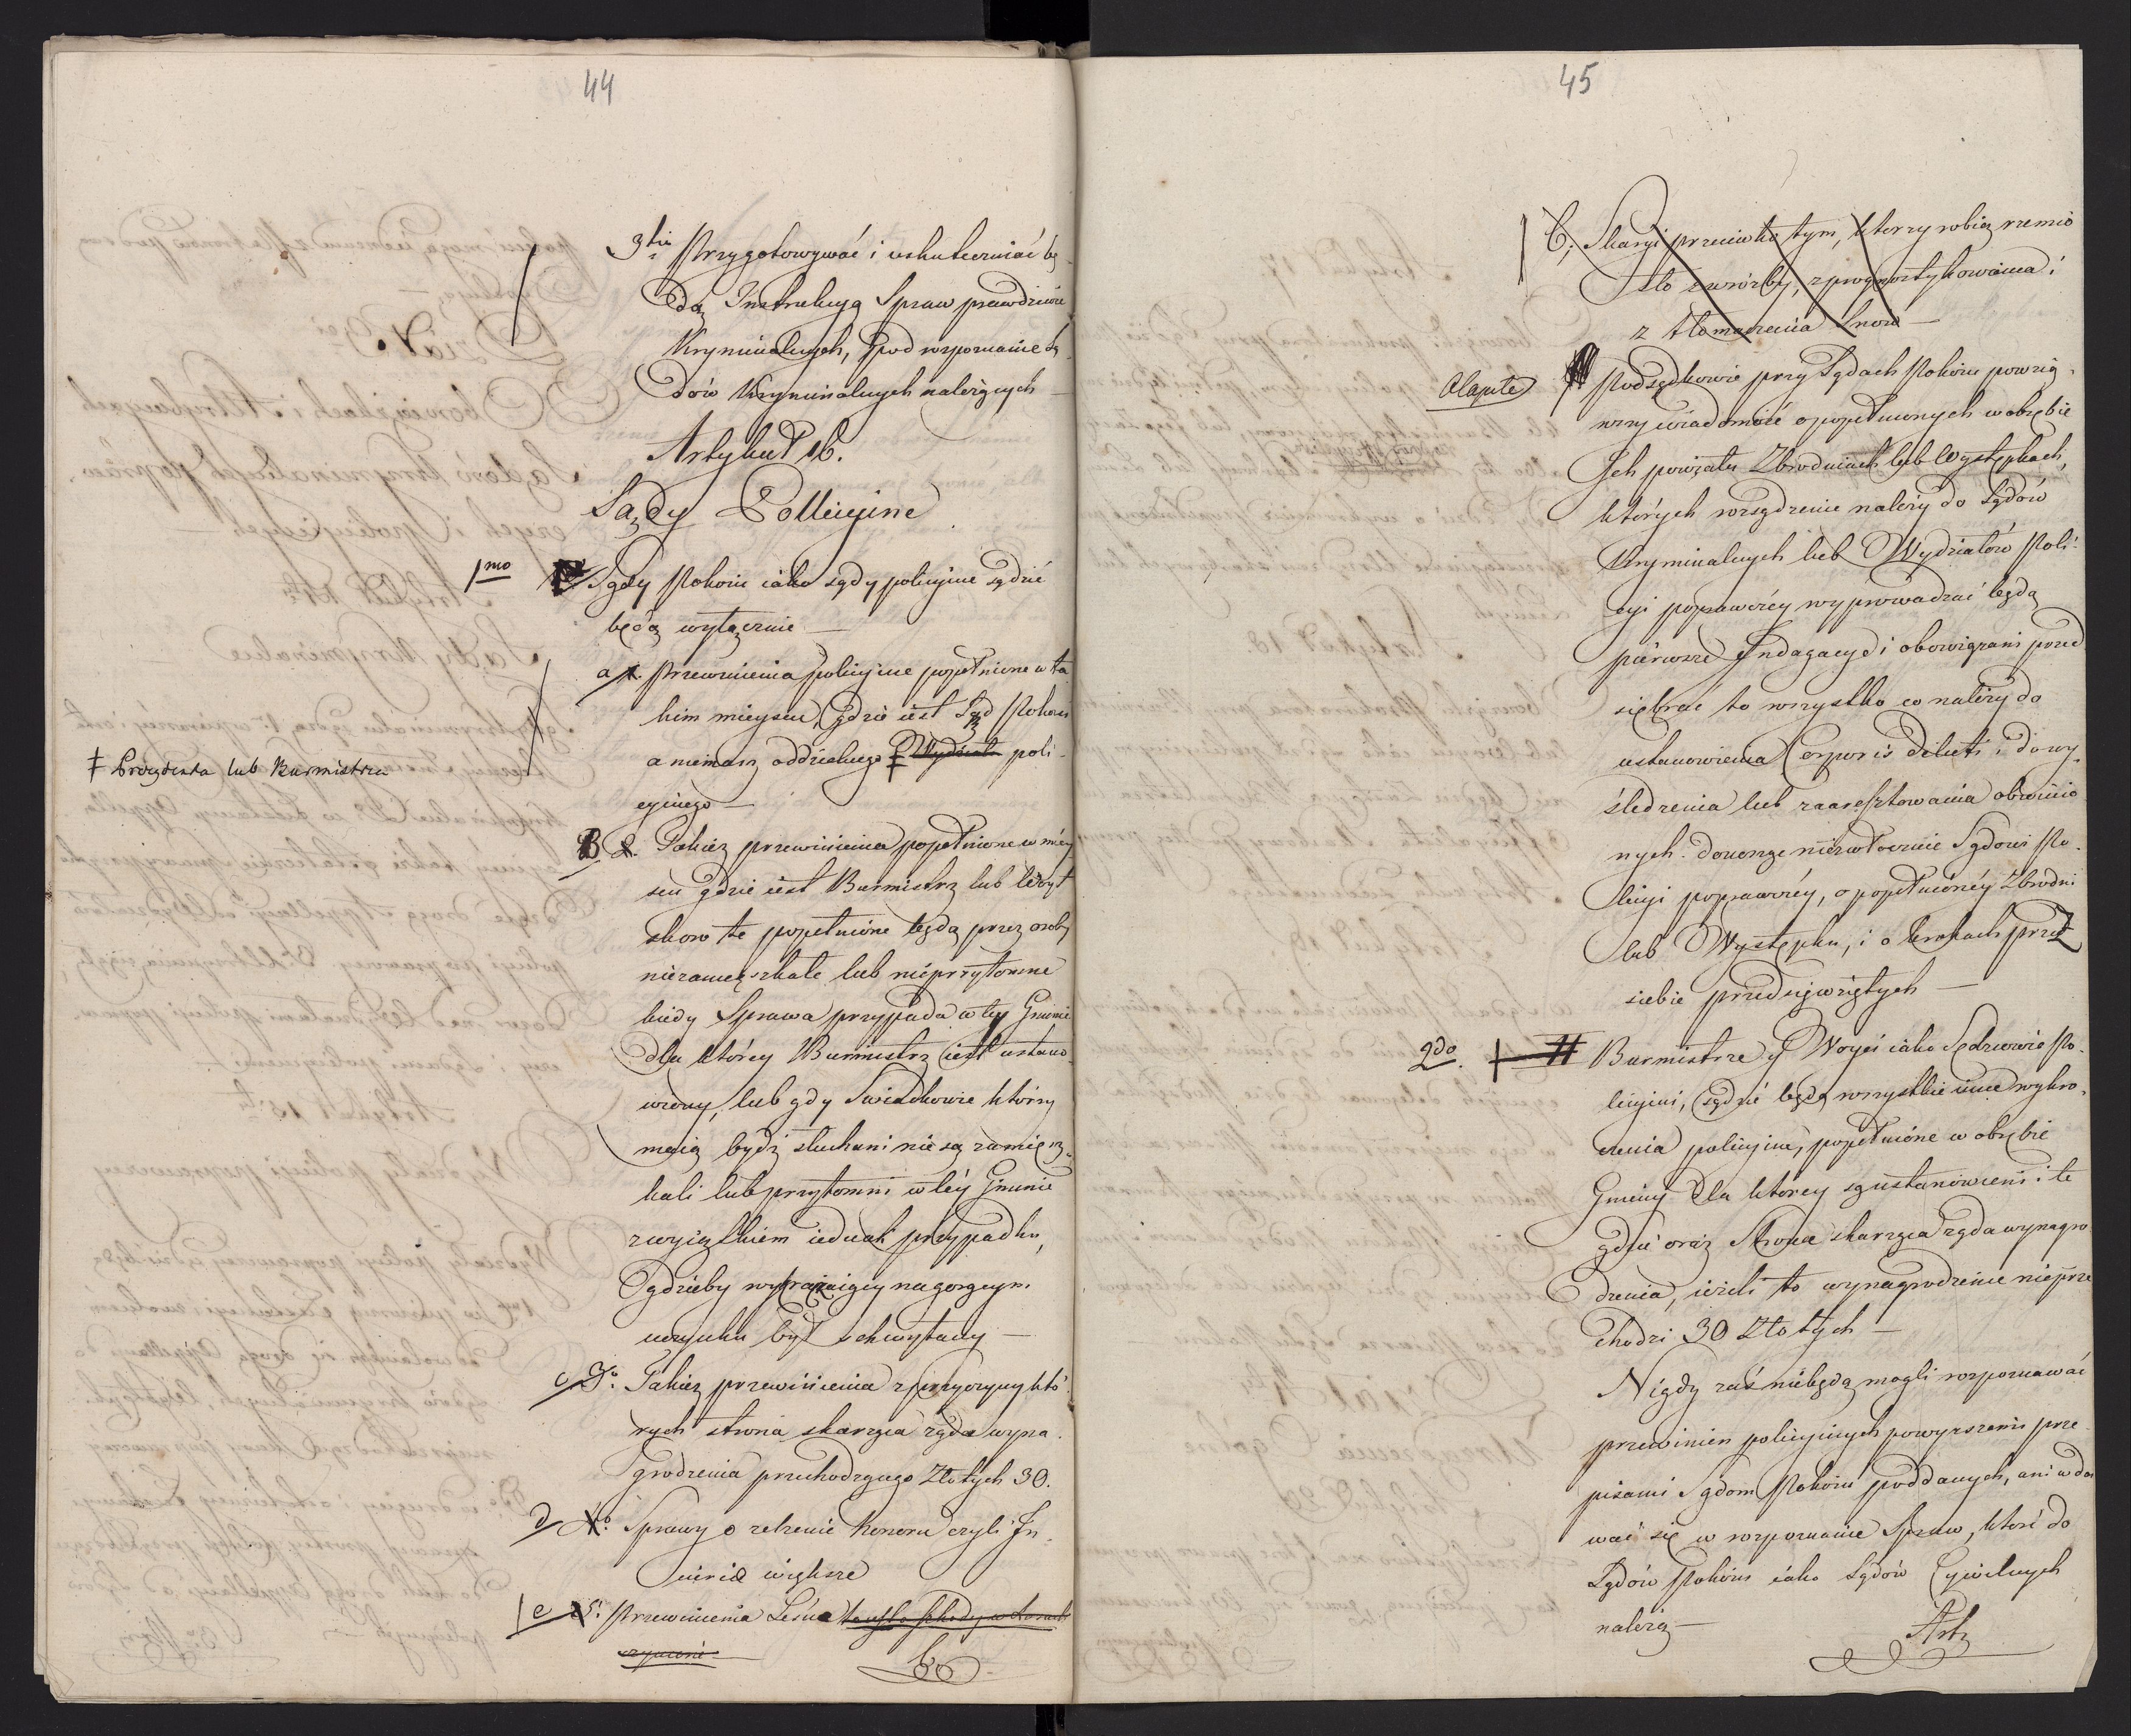 44
3tio Przygotowywać i uskuteczniać bę
dą Instrukcyą Spraw prawdziwie
Kryminalnych, pod rozpoznanie Są
dów Kryminalnych należących
Artykuł 16.
Sądy Pollicyine
1mo Sądy Pokoiu iako sądy policyine sądzić
będą wyłącznie —
a Przewinienia policyine popełnione w ta
kim mieyscu, gdzie iest Sąd Pokoiu
a niemasz oddzielnego ‡ Wydziału poli-
cyinego —
‡ Prezydenta lub Burmistrza
B 2. Takież przewinienia popełnione w miey
scu gdzie iest Burmistrz lub Woyt
skoro te popełnione będą przez osoby
niezamięszkałe lub nieprzytomne
kiedy Sprawa przypada w tey Gminie
dla którey Burmistrz iest ustano
wiony, lub gdy Swiadkowie którzy
maią bydź słuchani nie są zamięsz-
kali lub przytomni w téy Gminie
z wyiątkiem iednak przypadku,
gdzieby na gorącym
uczynku był schwytany —
c 3o. Takież przewinienia z przyczyny któ-
rych strona skarżąca żąda wyna-
grodzenia przechodzącego Złotych 30.
d 4o. Sprawy o zelżenie honoru czyli In-
iurie większe
e 5o. Przewinienia Leśne to iest szkody w Lasach
czynione
6o
45
6. Skargi przeciwko tym, ktorzy robią rzemio
sło z wróżby, z prognostykowania i
z tłomaczenia Snow —
a capite Podsędkowie przy Sądach Pokoiu powzią-
wszy wiadomość o popełnionych w obrębie
Ich powiatu Zbrodniach lub Występkach,
których rozsądzenie należy do Sądów
Kryminalnych lub Wydziałów Poli-
cyi poprawczéy wyprowadzać będą
piérwsze Indagacye i obowiązani przed
siębrać to wszystko co należy do
ustanowienia Corporis Delicti i do wy-
śledzenia lub zaaresztowania obwinio
nych. donosząc niezwłocznie Sądowi Po-
licyi poprawczéy, o popełnionéy Zbrodni
lub Występku, i o krokach przez
siebie przedsięwziętych —
2do. Burmistrze y Woyci iako Sędziowie Po-
licyini, sądzić będą wszystkie inne wykro-
czenia policyine, popełnione w obrębie
Gminy dla którey są ustanowieni i te
gdzie oraz Strona skarżąca żąda wynagro
dzenia, ieżeli to wynagrodzenie nieprze
chodzi 30 Złotych —
Nigdy zaś niebędą mogli rozpoznawać
przewinien policyinych powyższemi prze-
pisami Sądom Pokoiu poddanych, ani wda
wać się w rozpoznanie Spraw, które do
Sądów Pokoiu iako Sądów Cywilnych
należą —
Art